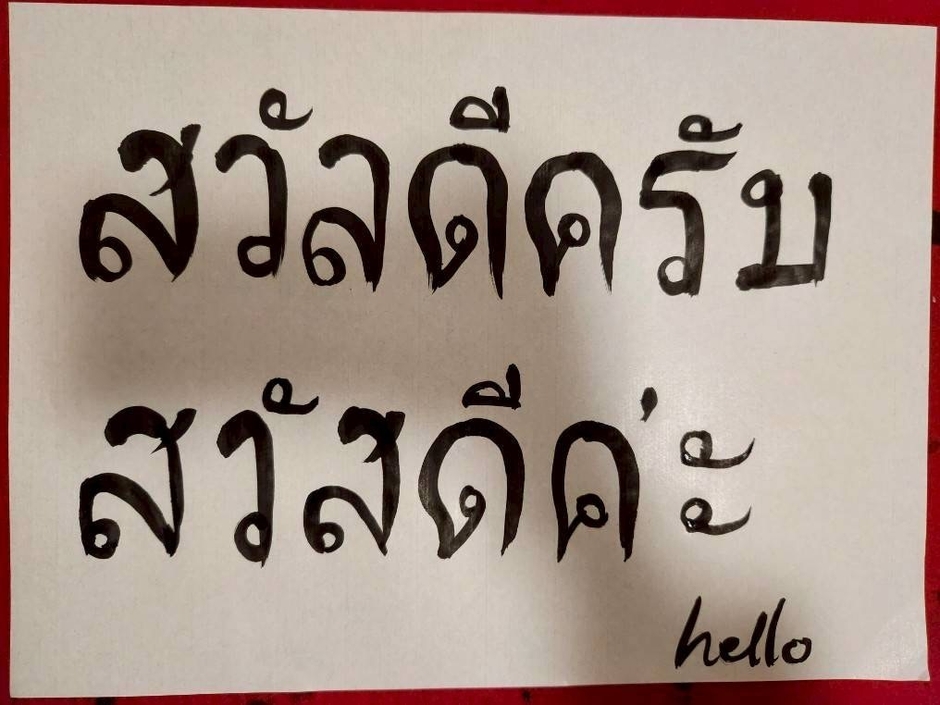 สวัลดีครับ
สวัสดีค่ะ
hello